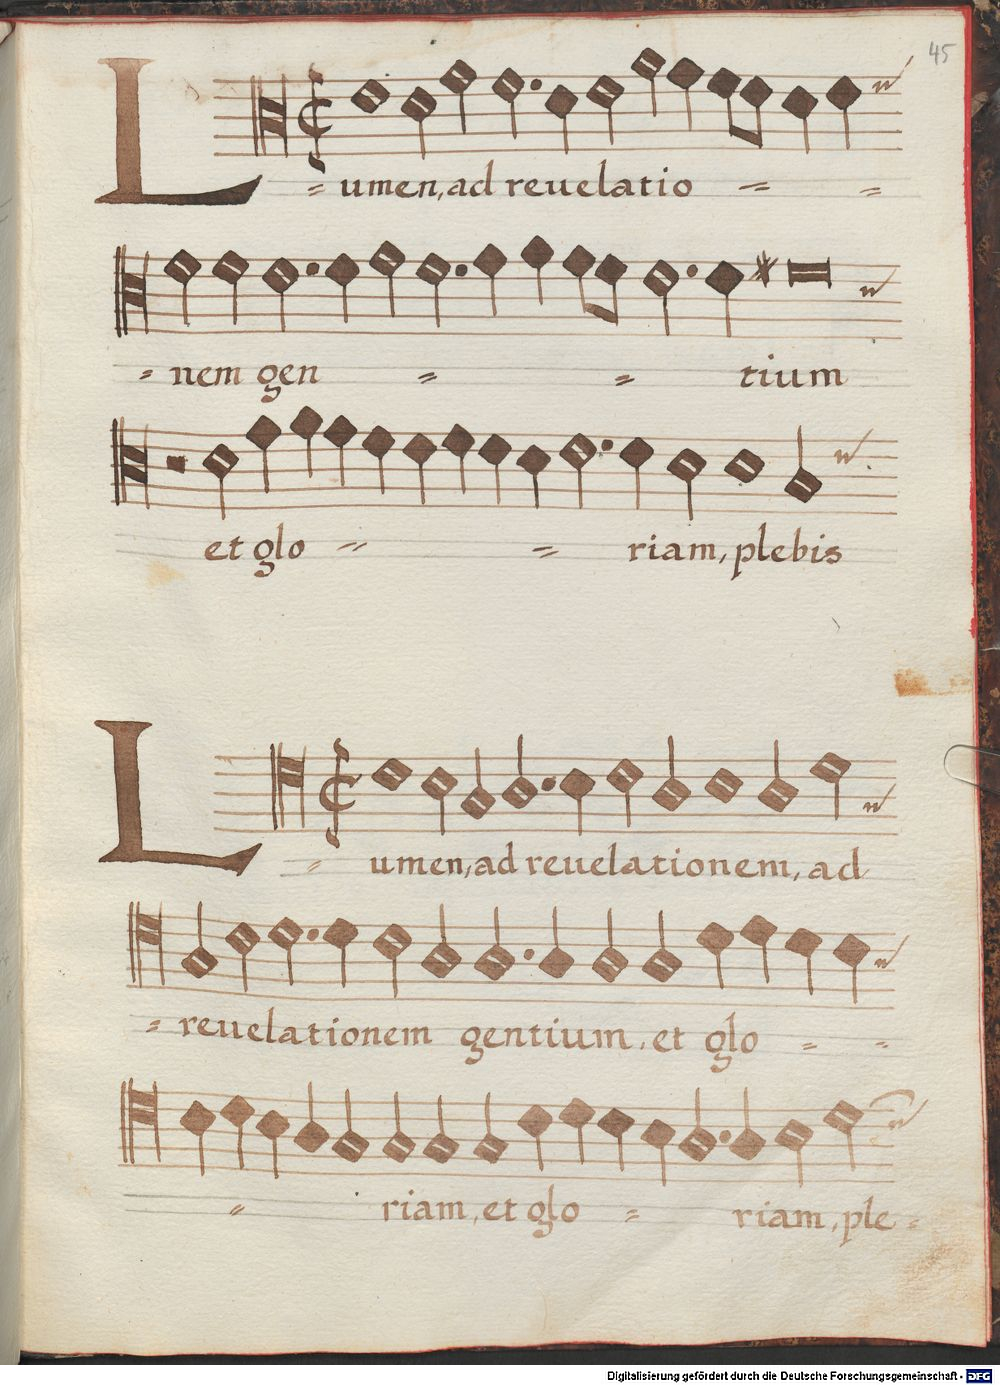 45
Lumen, ad reuelatio
nem gen tium
et glo riam, plebis
Lumen, ad reuelationem, ad
reuelationem gentium, et glo
riam, et glo riam, ple
Digitalisierung gefördert durch die Deutsche Forschungsgemeinschaft - DFG